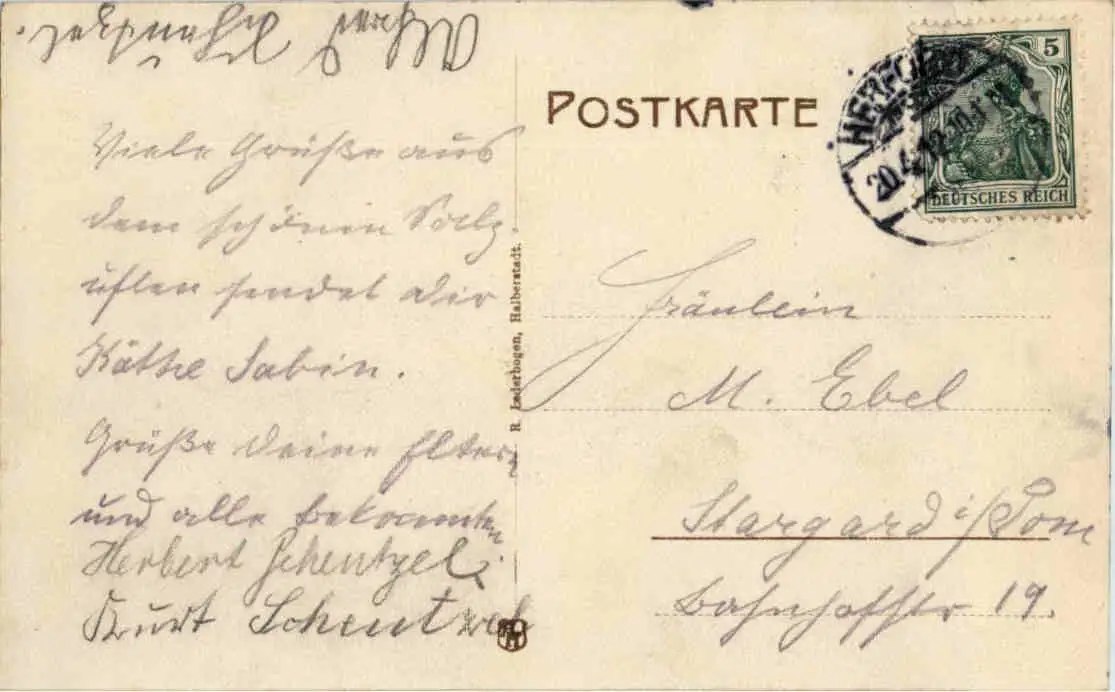 POSTKARTE
5
DEUTSCHES REICH
HERFORD
20.4.12.10-11
Viele Grüße aus
dem schönen Salz-
uflen sendet dir
Käthe Sabin.
Grüße deine Eltern
und alle bekannten
Herbert Schentzel.
Kurt Schentzel
R. Lederbogen, Halberstadt.
Fräulein
M. Ebel
Stargard i/Pom
Bahnhofstr 19.